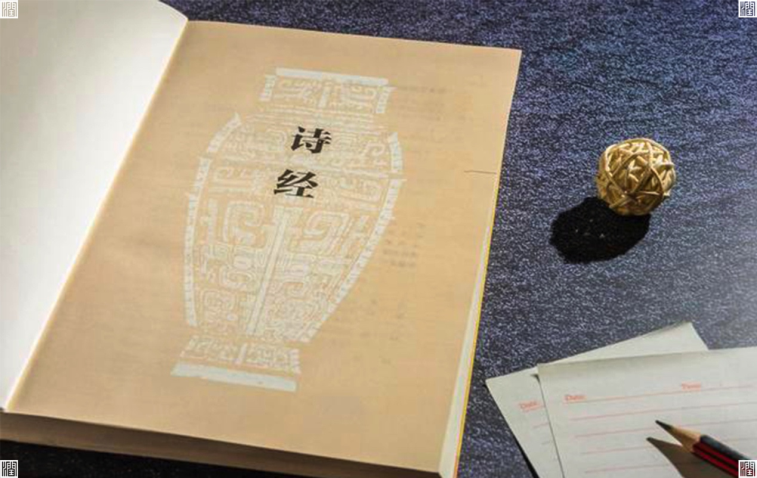 诗
经
Date: Time:
Date: